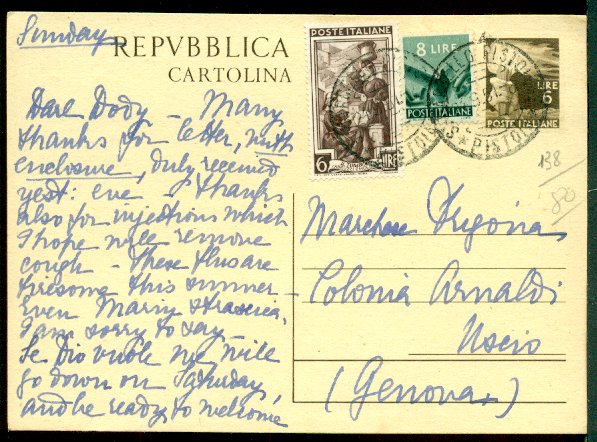 Sunday
REPVBBLICA
CARTOLINA
POSTE ITALIANE
6 LIRE
8 LIRE
POSTE ITALIANE
LIRE
6
POSTE ITALIANE
PISTOI
138
80
Dare Dody - Many
thanks for letter, with
enclosure, duly received
yest: eve - Thanks
also for injections which
I hope will remove
cough - These flus are
tiresome this summer -
Even Mario
I am sorry to say -
Se Dio vuole we will
go down on Saturday,
and be ready to welcome
Marchese Trigona
Colonia Arnaldi
Uscio
(Genova)